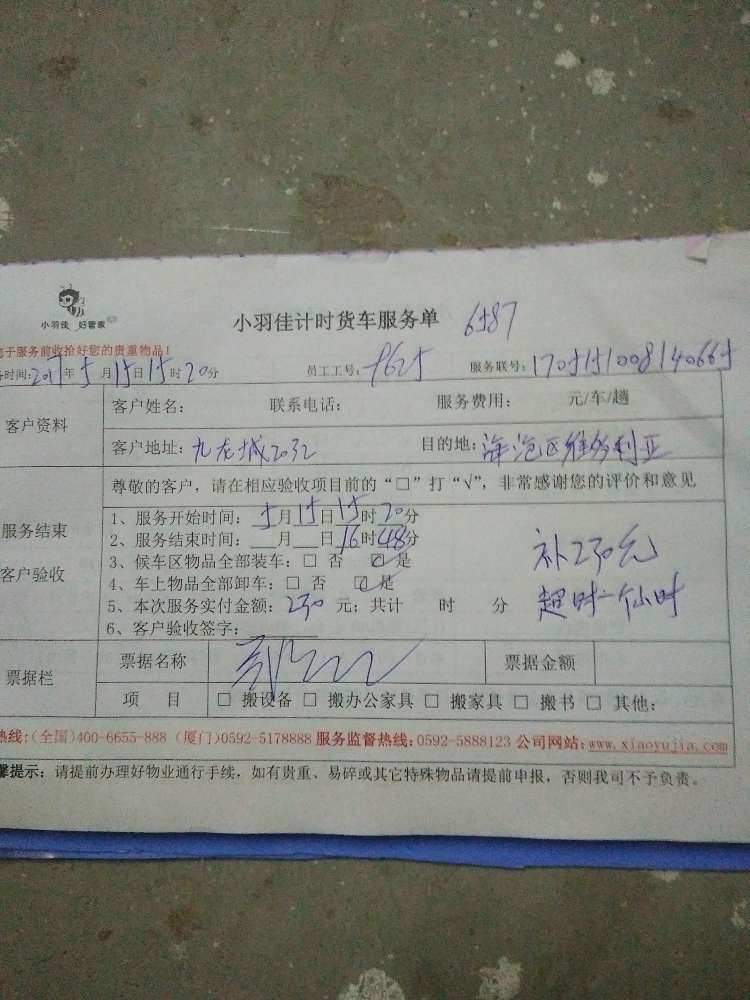 小羽佳 好管家
小羽佳计时货车服务单 6587
于服务前收拾好您的贵重物品!
时间:2017年5月15日15时20分 员工工号: 9625 服务联号: 1705151008140665
客户资料
客户姓名: 联系电话: 服务费用: 元/车/趟
客户地址: 九龙城2032 目的地: 海沧区维多利亚
尊敬的客户，请在相应验收项目前的“□”打“√”，非常感谢您的评价和意见
服务结束
客户验收
1、服务开始时间: 5月15日15时20分
2、服务结束时间: 月 日16时48分
3、候车区物品全部装车: □ 否 ☑ 是
4、车上物品全部卸车: □ 否 ☑ 是
5、本次服务实付金额: 230 元; 共计 时 分
6、客户验收签字:
补230元
超时一个小时
票据栏
票据名称 票据金额
项 目 □ 搬设备 □ 搬办公家具 □ 搬家具 □ 搬书 □ 其他:
热线:(全国)400-6655-888 (厦门)0592-5178888 服务监督热线:0592-5888123 公司网站:www.xiaoyujia.com
馨提示: 请提前办理好物业通行手续，如有贵重、易碎或其它特殊物品请提前申报，否则我司不予负责。